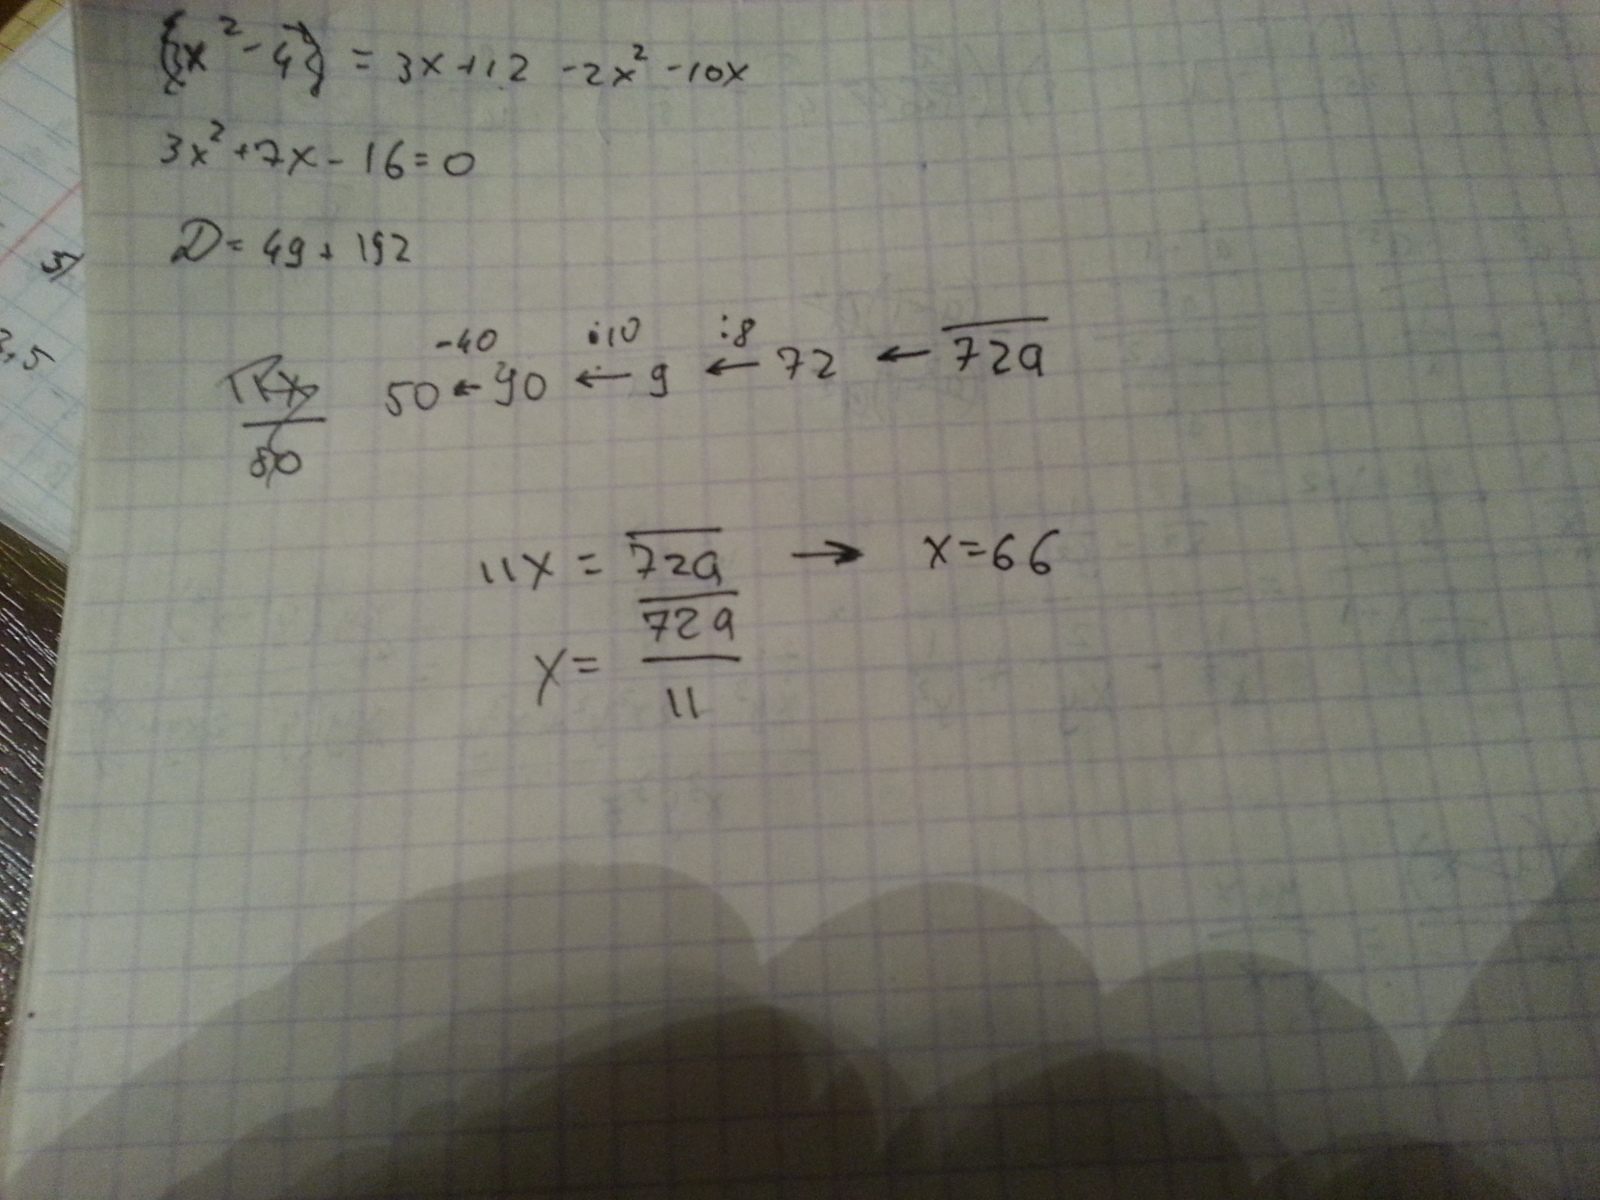 (x² - 4) = 3x + 12 - 2x² - 10x
3x² + 7x - 16 = 0
D = 49 + 192
5)
3,5
-40 :10 :8
50 ← 90 ← 9 ← 72 ← 72a
80
11x = 72a → x = 66
x = 72a / 11